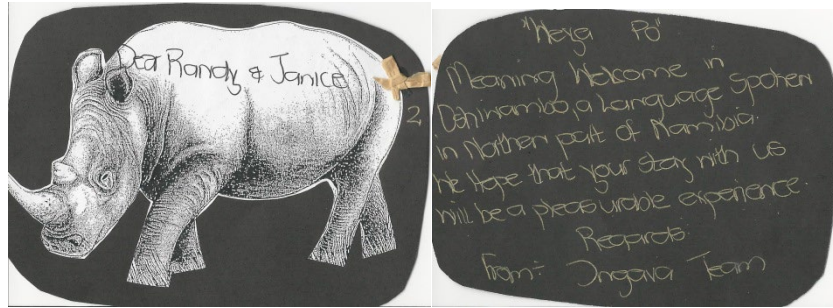 Dear Randy & Janice
2
"Weya Po"
Meaning Welcome in
Oshiwambo, a Language Spoken
in Northen part of Namibia.
We Hope that your stay with us
will be a pleasurable experience.
Regards:
From:- Ongava Team